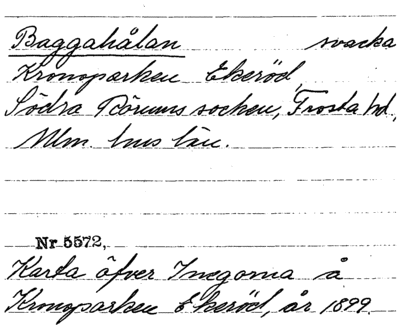 Baggahålan svacka
Kronoparken Ekeröd,
Södra Rörums socken, Frosta hd.,
Mlm. hus län.
Nr 5572,
Karta öfver Inegorna å
Kronoparken Ekeröd, år 1899.